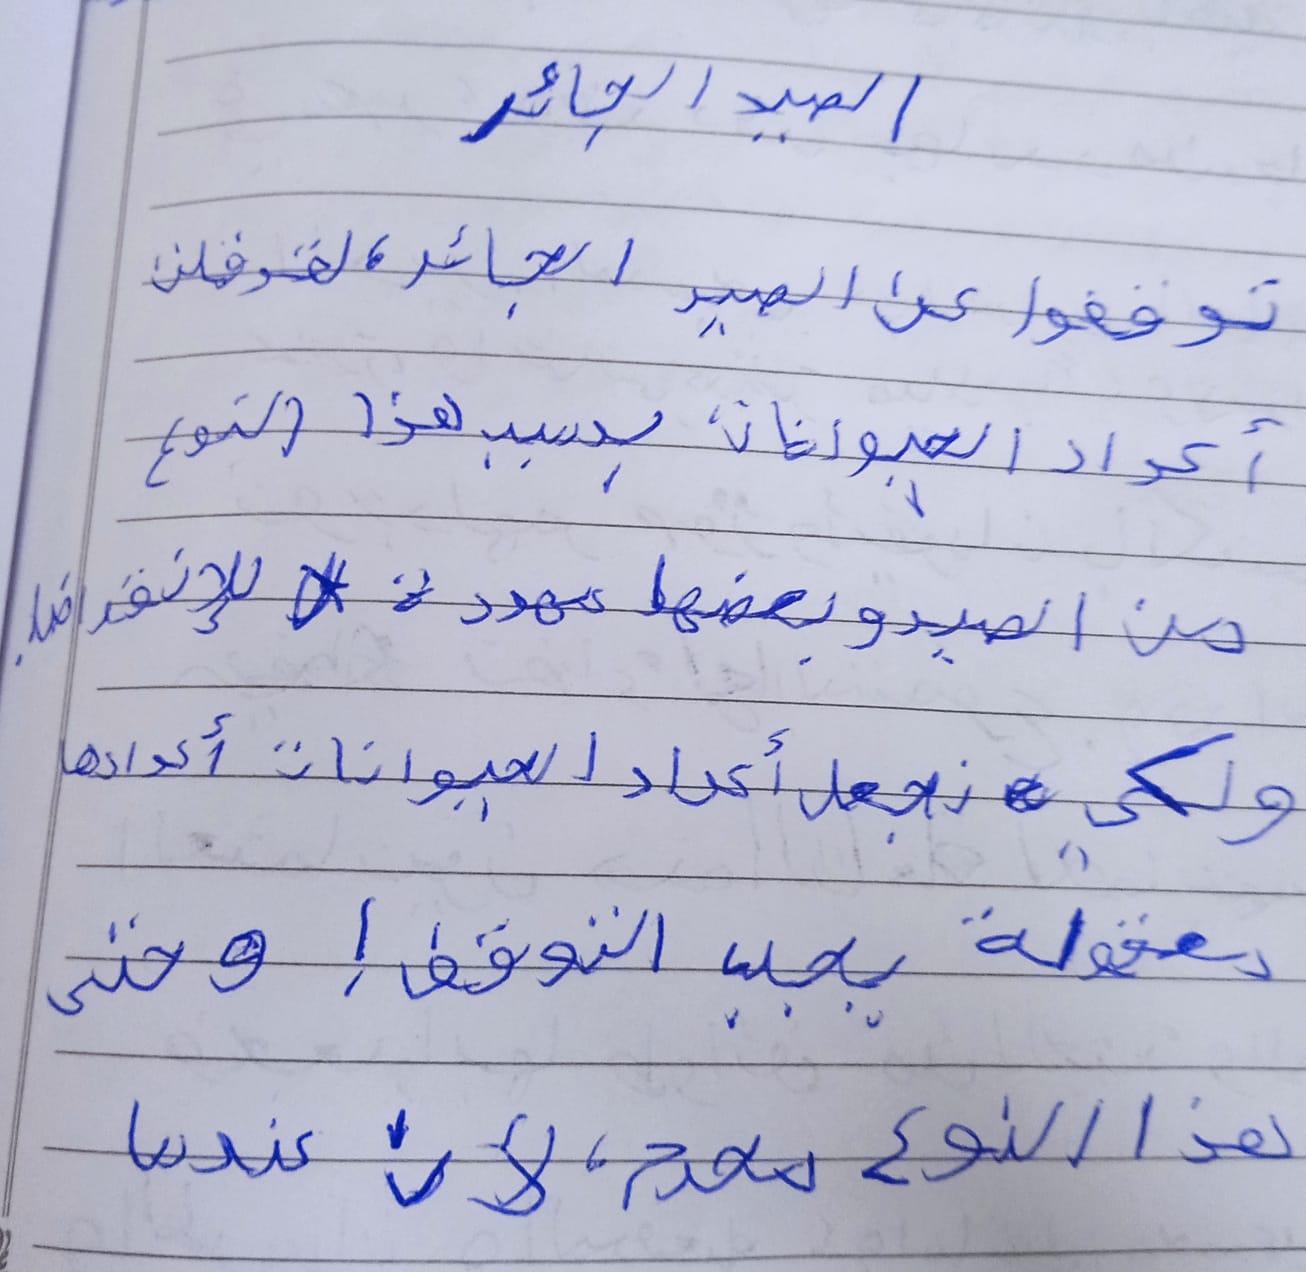 الصيد الجائر
توقفوا عن الصيد الجائر، لقد قلت
أعداد الحيوانات بسبب هذا النوع
من الصيد وبعضها مهدد للإنقراض
ولكي نجعل أعداد الحيوانات أعدادها
معقولة يجب التوقف! وحتى
هذا النوع محرم، لأن عندما